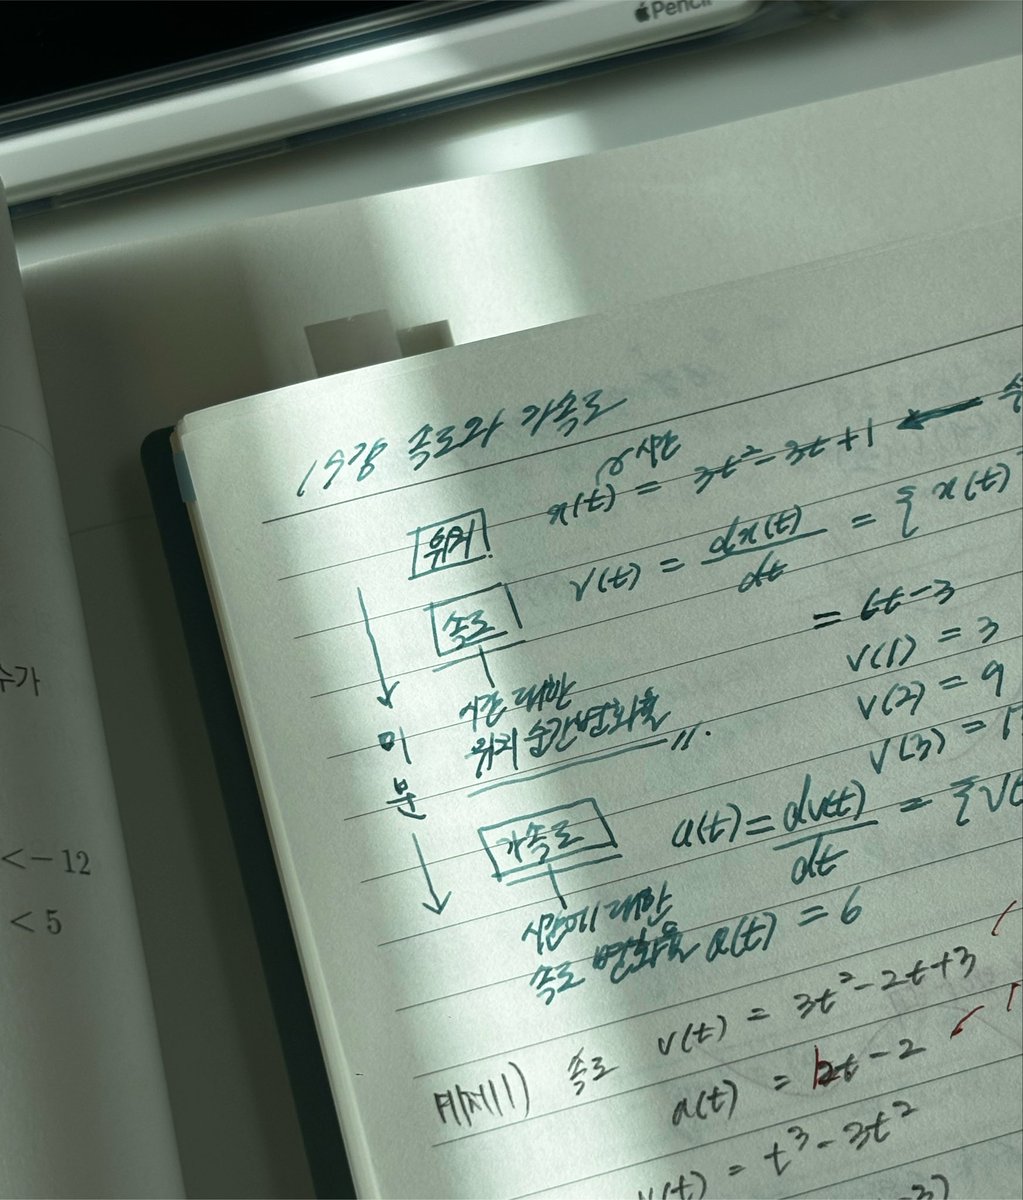 Pencil
수가
<-12
< 5
15강 속도와 가속도
시간
위치 x(t) = 3t² - 3t + 1 ←
속도 v(t) = dx(t)/dt = { x(t)
= 6t - 3
v(1) = 3
시간 대한
v(2) = 9
위치 순간변화율 〃.
v(3) =
미
분
가속도 a(t) = dv(t)/dt = {v(t
시간에 대한
속도 변화율 a(t) = 6
예제1) 속도 v(t) = 3t² - 2t + 3
a(t) = 6t - 2
v(t) = t³ - 3t²